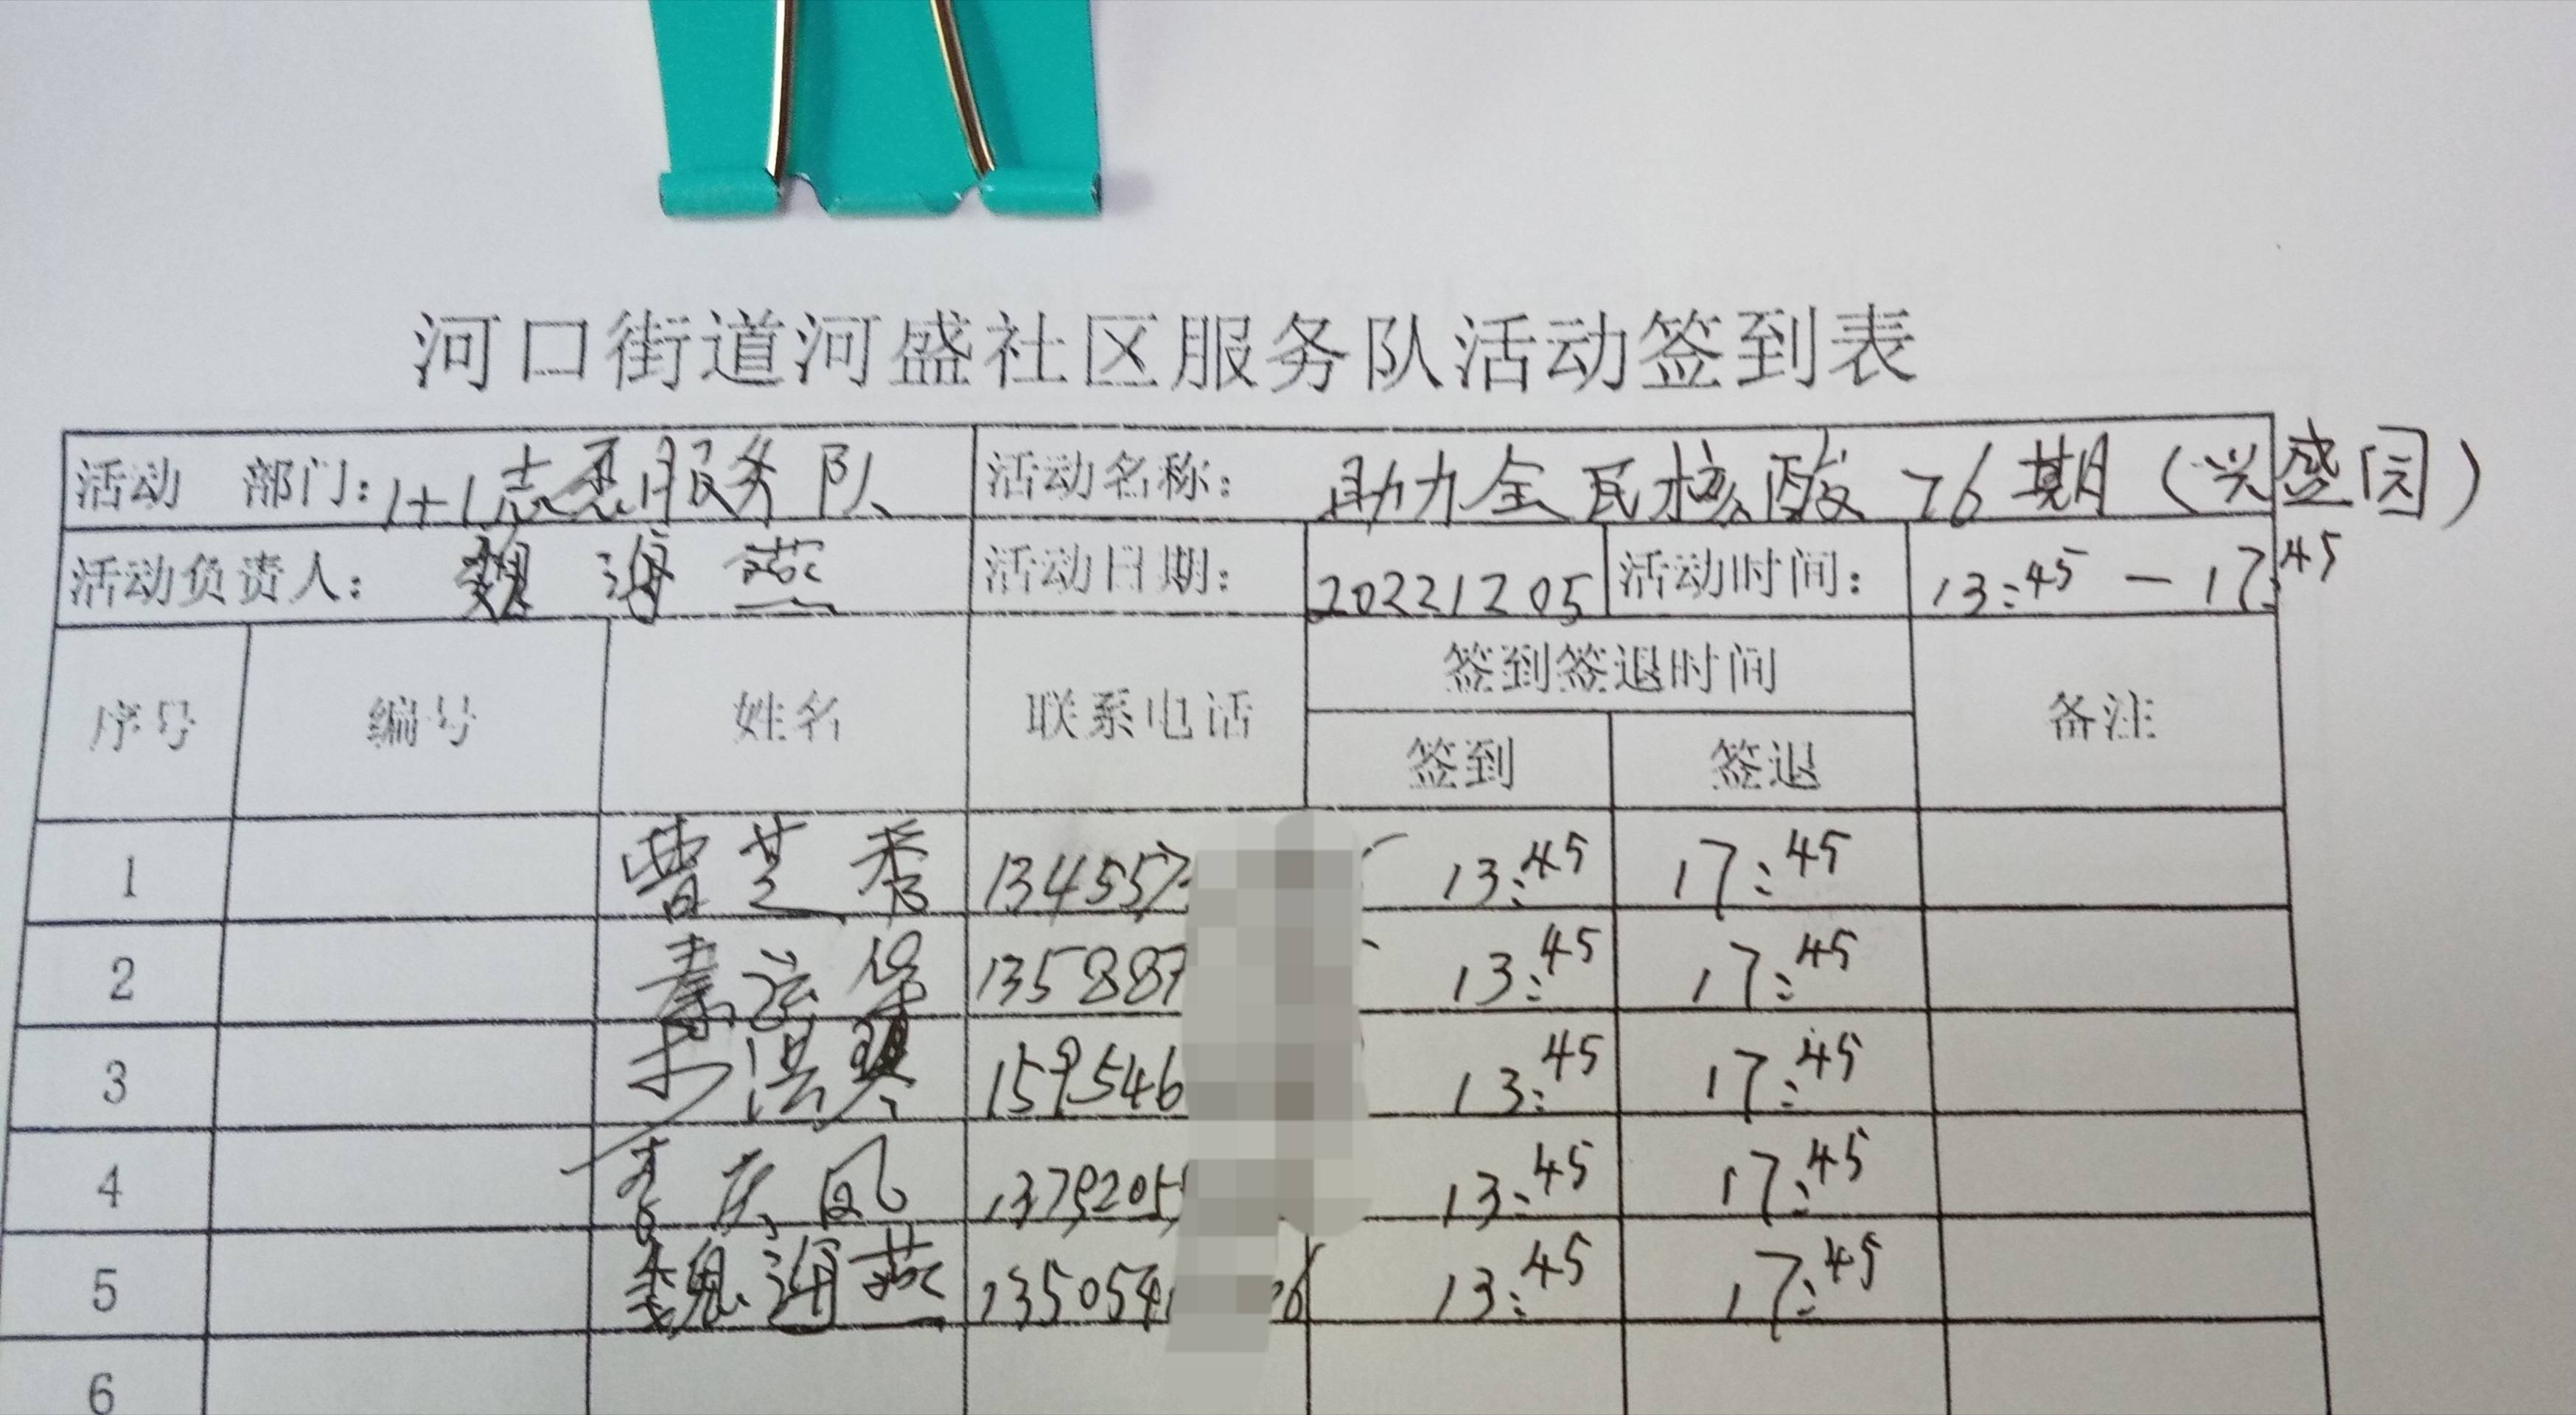 河口街道河盛社区服务队活动签到表
活动 部门：1+1志愿服务队 活动名称： 助力全民核酸76期（兴盛园）
活动负责人： 魏海燕 活动日期： 20221205 活动时间： 13:45－17:45
序号 编号 姓名 联系电话 签到签退时间 备注
签到 签退
1 曹芝香 134557 13:45 17:45
2 13588 13:45 17:45
3 159546 13:45 17:45
4 13:45 17:45
5 魏海燕 135054 13:45 17:45
6